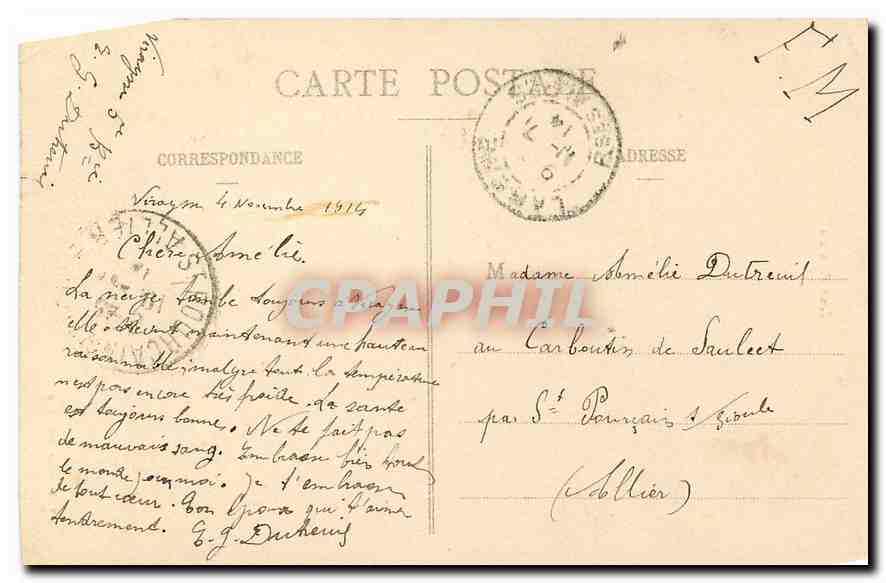 F. M
E. G. Dutreuil
CARTE POSTALE
CORRESPONDANCE
ADRESSE
4 Novembre 1914
Chère Amélie.
La neige tombe toujours a
elle atteint maintenant une hauteur
raisonnable, malgré tout la température
n'est pas encore très froide. La santé
est toujours bonne. Ne te fait pas
de mauvais sang. Embrasse bien tout
le monde pour moi. Je t'embrasse
de tout cœur. Ton époux qui t'aime
tendrement. E. G. Dutreuil
Madame Amélie Dutreuil
au Carboutin de Saulcet
par St Pourçain s/ Sioule
(Allier)
ALLIER
CPAPHIL